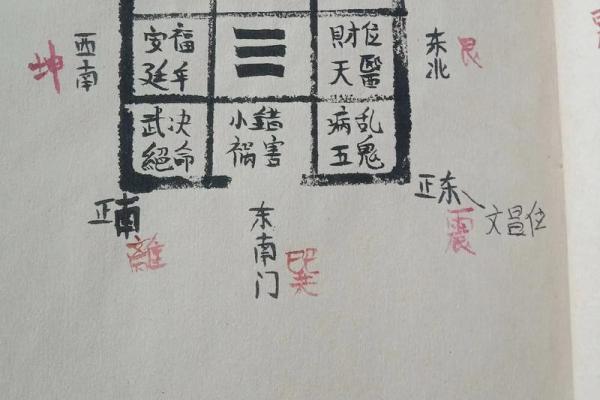 西南
坤
安福
延年
財位
天醫
东北
艮
武決
絕命
小錯
祸害
病乱
五鬼
正南
離
东南门
巽
正东
震
文昌位